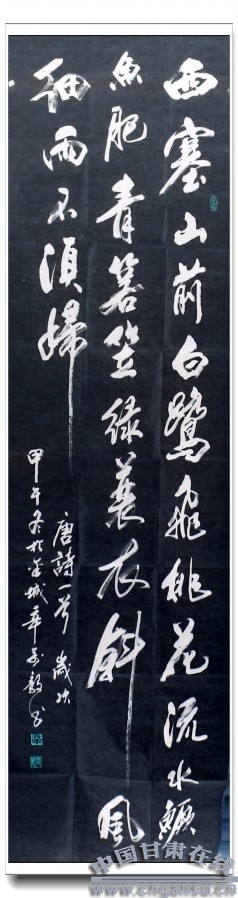 西塞山前白鹭飛桃花流水鱖
魚肥青箬笠绿蓑衣斜風
细雨不須歸
唐詩一首 歲次
甲午冬於金城
中国甘肃在线
www.cngansu.cn